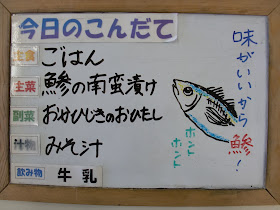 今日のこんだて
主食 ごはん
主菜 鯵の南蛮漬け
副菜 おかひじきのおひたし
汁物 みそ汁
飲み物 牛乳
味がいいから
鯵!
ホント
ホント